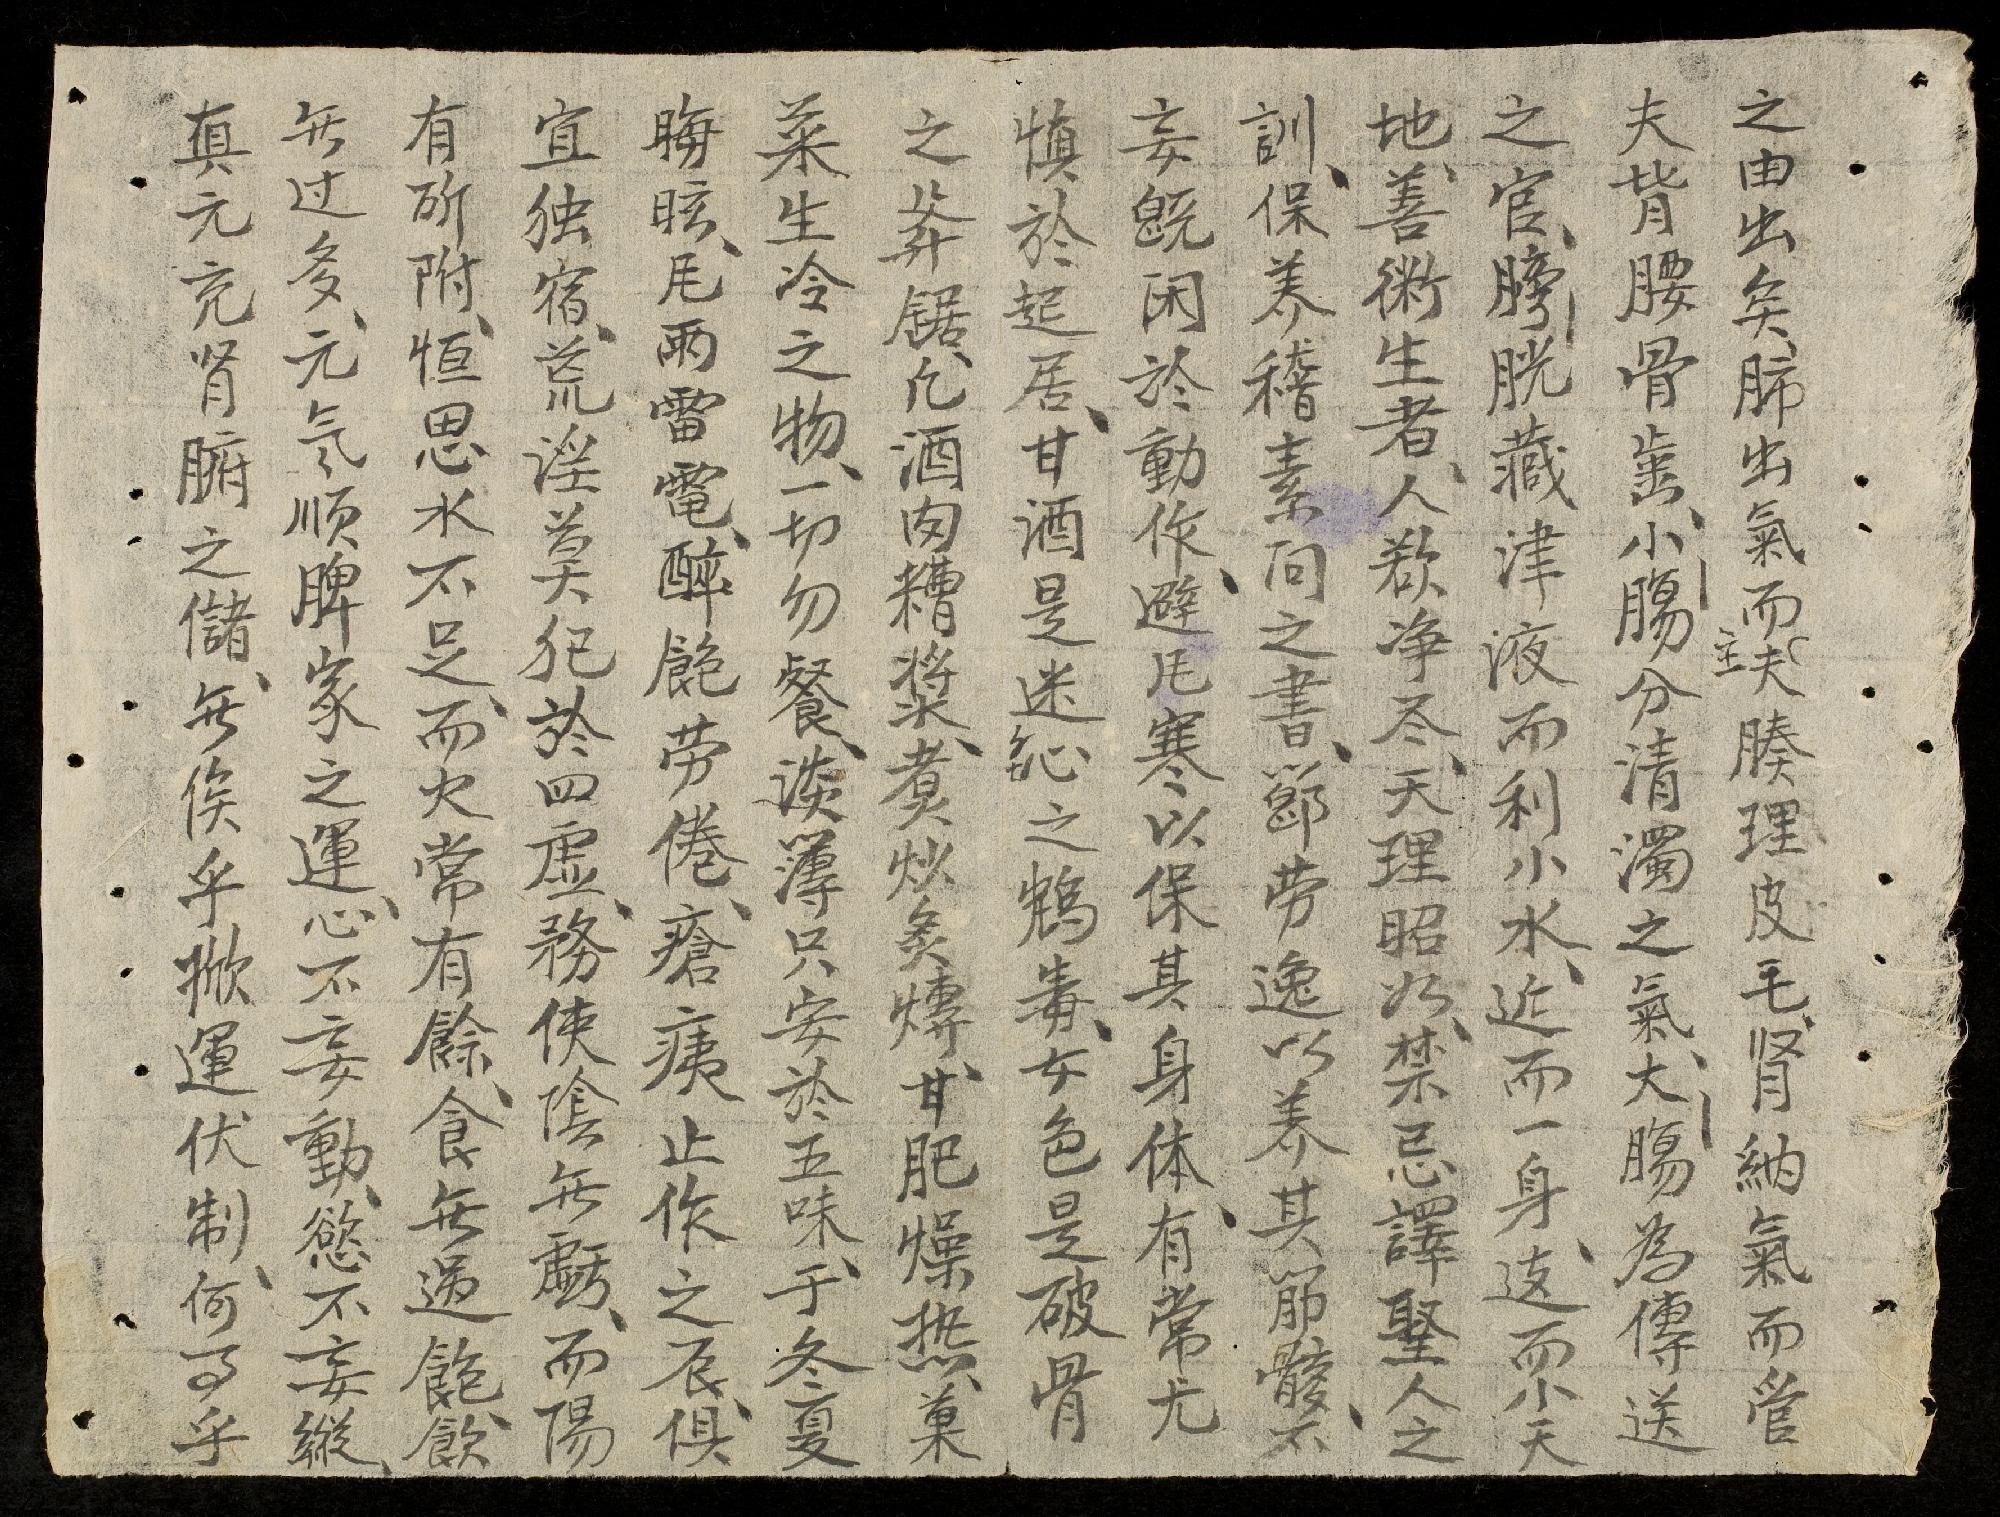 之由出矣、肺出氣而主夫腠理皮毛、肾納氣而管
夫背腰骨齒、小腸分清濁之氣、大腸為傳送
之官、膀胱藏津液而利小水、近而一身、远而小天
地、善衛生者、人欲净尽、天理昭如、禁忌譯聖人之
訓、保养稽素问之書、節劳逸以养其筋骸、不
妄既闲於動作、避凡寒以保其身体、有常尤
慎於起居、甘酒是迷心之鴆毒、女色是破骨
之莽鋸、凡酒肉糟漿、煮炒炙煿、甘肥燥热、菓
菜生冷之物、一切勿餐、淡薄只安於五味、于冬夏
晦眩、凡雨雷電、醉飽劳倦、瘡痍止作之辰、俱
宜独宿、荒淫莫犯於四虚、務使陰無虧、而陽
有所附、恒思水不足、而火常有餘、食無過飽、飲
無过多、元气顺脾家之運、心不妄動、慾不妄縱、
真元充肾腑之儲、無俟乎掀運伏制、何事乎